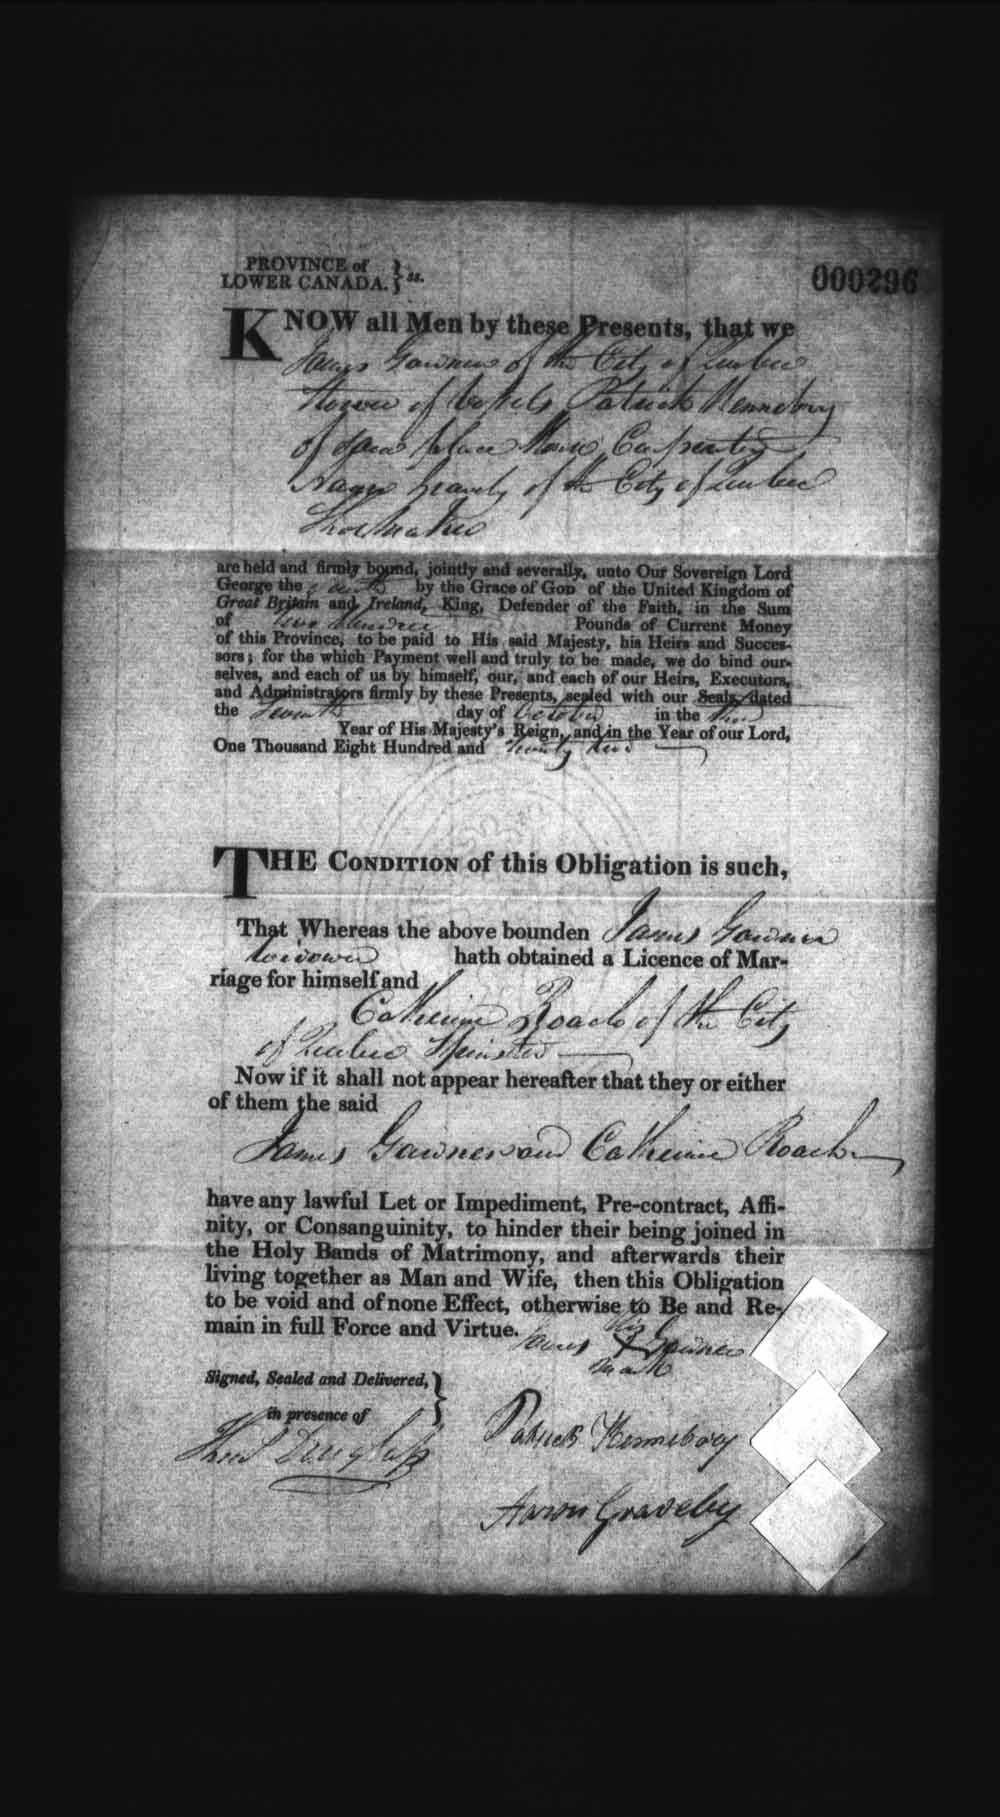 PROVINCE of
LOWER CANADA. } ss.
000296
KNOW all Men by these Presents, that we
James Gawner of the City of Quebec
Stower of Vessels Patrick Hennebry
of same place House Carpenter
Gravely of the City of Quebec
Shoemaker
are held and firmly bound, jointly and severally, unto Our Sovereign Lord
George the fourth by the Grace of GOD of the United Kingdom of
Great Britain and Ireland, King, Defender of the Faith, in the Sum
of two Hundred Pounds of Current Money
of this Province, to be paid to His said Majesty, his Heirs and Succes-
sors; for the which Payment well and truly to be made, we do bind our-
selves, and each of us by himself, our, and each of our Heirs, Executors,
and Administrators firmly by these Presents, sealed with our Seals, dated
the Seventh day of October in the third
Year of His Majesty's Reign, and in the Year of our Lord,
One Thousand Eight Hundred and twenty two
THE CONDITION of this Obligation is such,
That Whereas the above bounden James Gawner
widower hath obtained a Licence of Mar-
riage for himself and
Catherine Roach of the City
of Quebec Spinster
Now if it shall not appear hereafter that they or either
of them the said
James Gawner and Catherine Roach
have any lawful Let or Impediment, Pre-contract, Affi-
nity, or Consanguinity, to hinder their being joined in
the Holy Bands of Matrimony, and afterwards their
living together as Man and Wife, then this Obligation
to be void and of none Effect, otherwise to Be and Re-
main in full Force and Virtue.
his
James X Gawner
mark
Signed, Sealed and Delivered, }
in presence of
Patrick Hennebry
Aaron Graveley